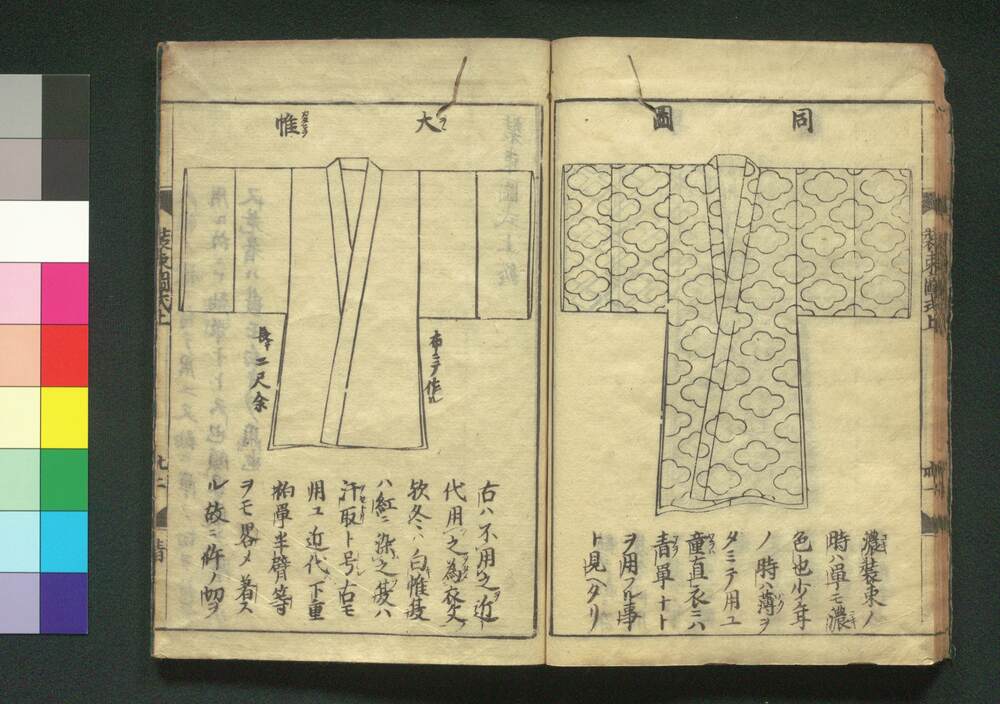 同圖
濃装束ノ
時ハ單モ濃
色也少年
ノ時ハ薄ヲ
タミテ用ユ
童直衣ニハ
青單ナト
ヲ用フル事
ト見ヘタリ
大帷
布ニテ作ル
長サ二尺余
古ハ不用之近
代用之為衣文
欤冬ハ白帷夏
ハ紅ニ染之夏ハ
汗取ト号ノ古モ
用ユ近代下重
衵單半臂等
ヲモ畧メ着ス
ル故ニ件ノ切ヲ
装束圖式上